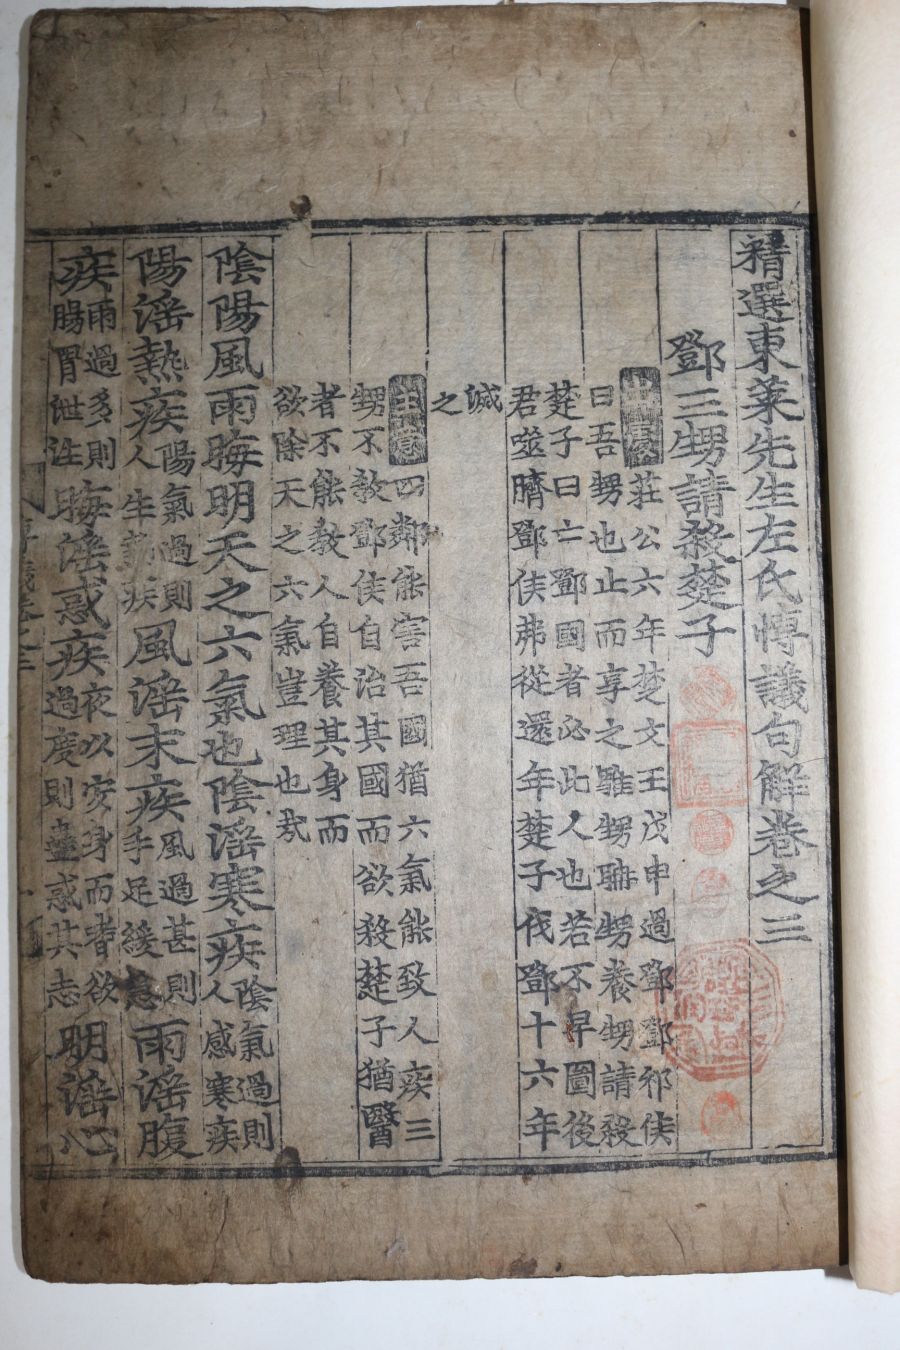 精選東萊先生左氏博議句解卷之三
鄧三甥請殺楚子
出處莊公六年楚文王戊申過鄧鄧祁侯
曰吾甥也止而享之騅甥聃甥養甥請殺
楚子曰亡鄧國者必此人也若不早圖後
君噬臍鄧侯弗從還年楚子伐鄧十六年
滅
之
主意四鄰能害吾國猶六氣能致人疾三
甥不教鄧侯自治其國而欲殺楚子猶醫
者不能教人自養其身而
欲除天之六氣豈理也哉
陰陽風雨晦明天之六氣也陰滛寒疾陰氣過則人感寒疾
陽滛熱疾陽氣過則人生熱疾風滛末疾風過甚則手足緩急雨滛腹
疾雨過多則腸胃泄注晦滛惑疾夜以安身而耆欲過度則蠱惑其志明滛心